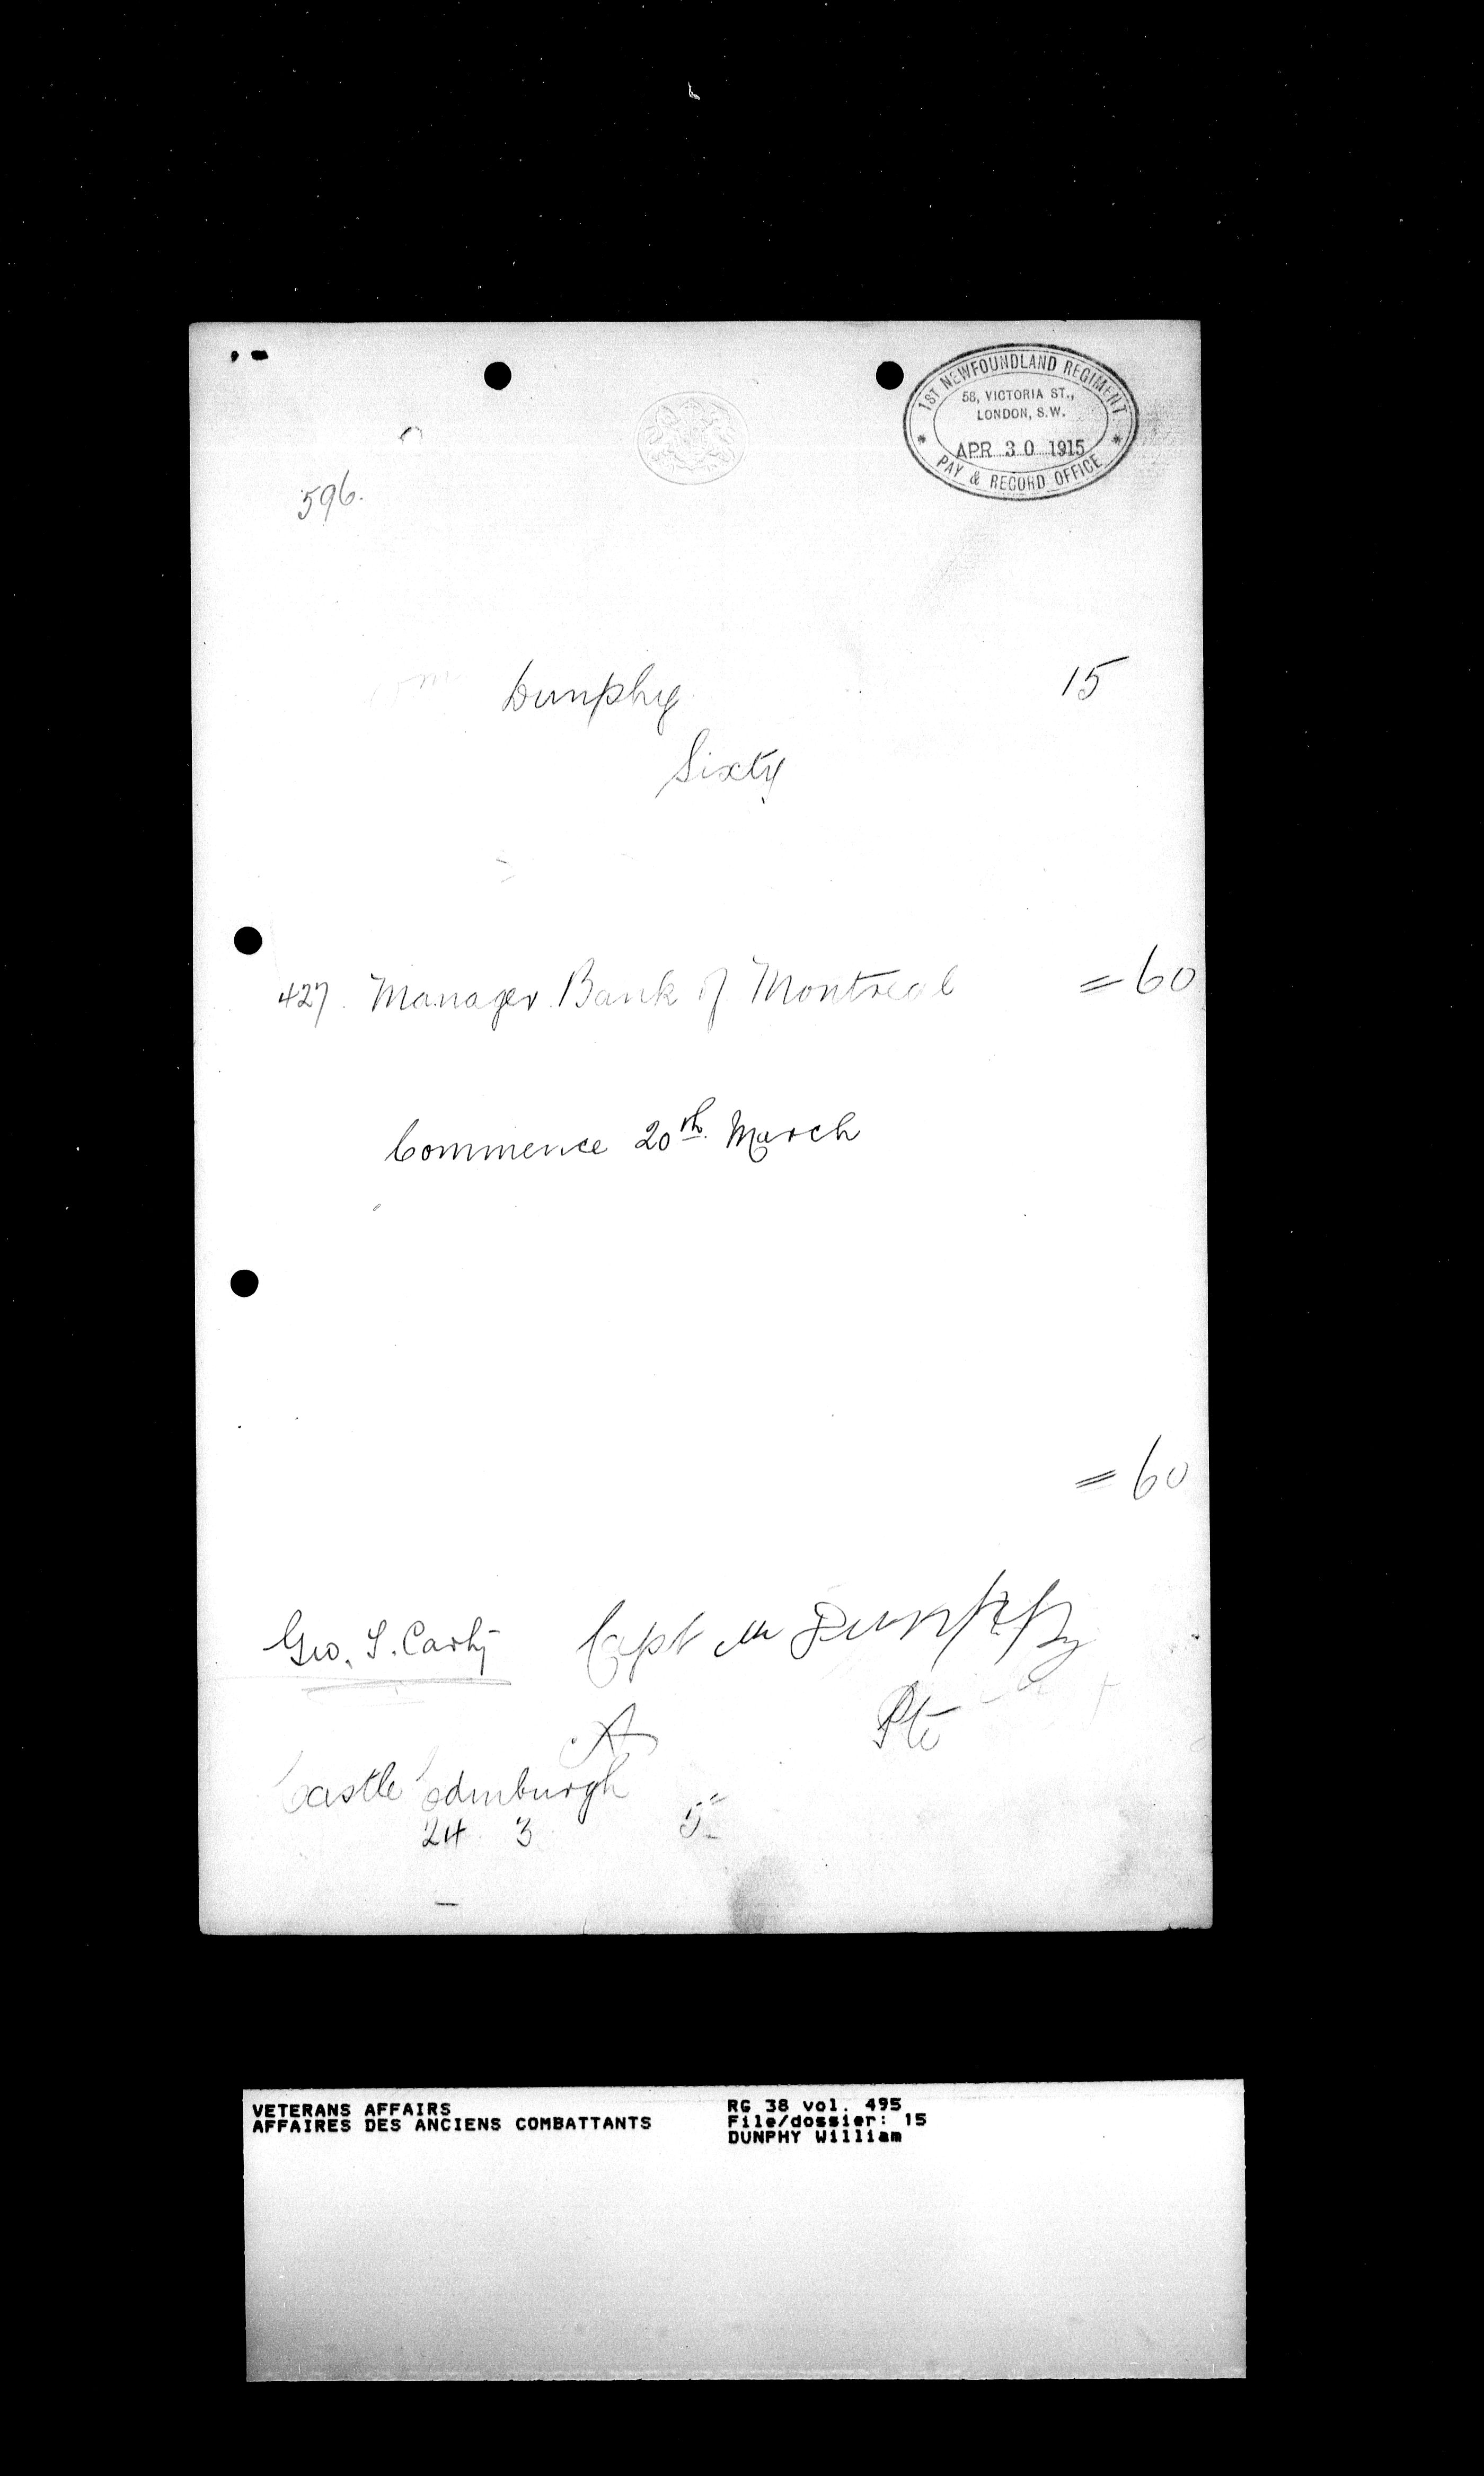 1ST NEWFOUNDLAND REGIMENT
58, VICTORIA ST.,
LONDON, S.W.
APR 30 1915
PAY & RECORD OFFICE
596.
Wm Dunphy 15
Sixty
427. Manager Bank of Montreal = 60
Commence 20th March
= 60
Geo. T. Carty Capt Wm Dunphy
A Pte
Castle Edinburgh
24 3 5
VETERANS AFFAIRS RG 38 vol. 495
AFFAIRES DES ANCIENS COMBATTANTS File/dossier: 15
DUNPHY William